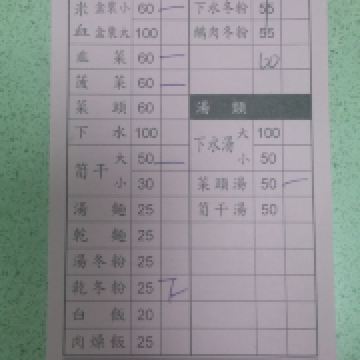 米血 盒裝小 60
盒裝大 100
血菜 60
菠菜 60
菜頭 60
下水 100
筍干 大 50
小 30
湯麵 25
乾麵 25
湯冬粉 25
乾冬粉 25
白飯 20
肉燥飯 25
下水冬粉 55
鵝肉冬粉 55
60
湯類
下水湯 大 100
小 50
菜頭湯 50
筍干湯 50